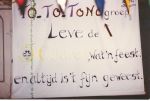 O.TO.TONO groep
Leve de 1
wat'n feest.
en altijd is 't fijn geweest.